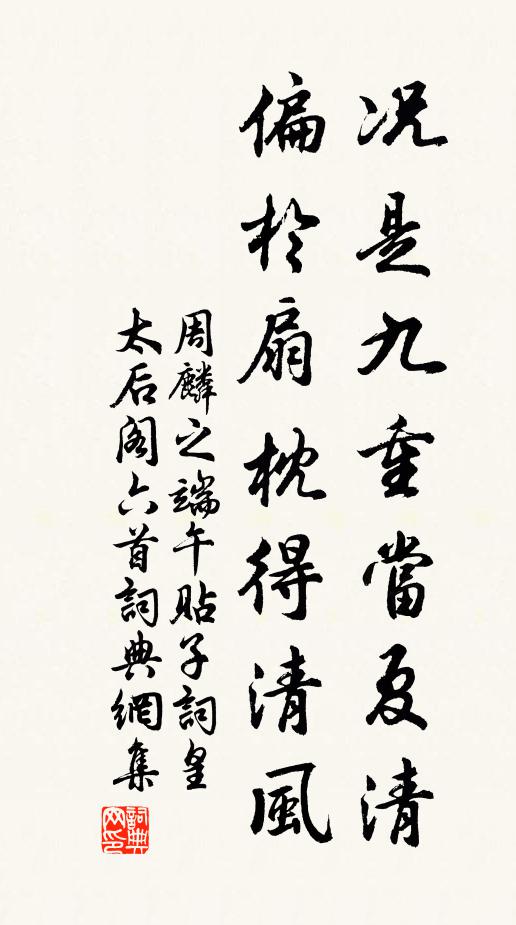 况是九重當夏清
偏於扇枕得清風
周麟之端午貼子詞皇
太后阁六首詞典網集
詞典
网印